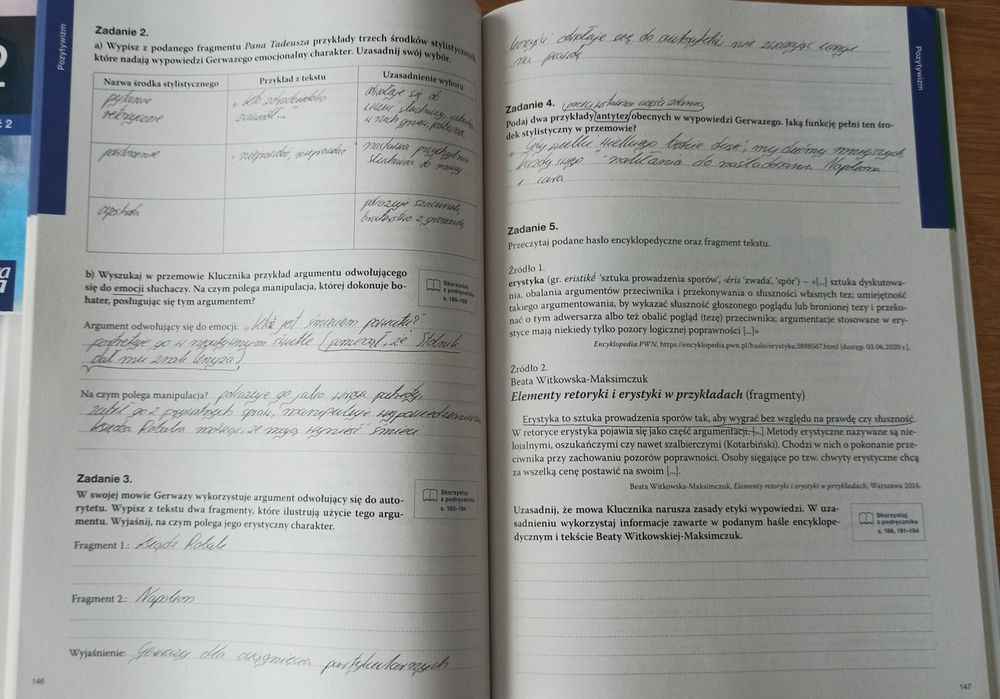 Pozytywizm
Zadanie 2.
a) Wypisz z podanego fragmentu Pana Tadeusza przykłady trzech środków stylistycznych,
które nadają wypowiedzi Gerwazego emocjonalny charakter. Uzasadnij swój wybór.
Nazwa środka stylistycznego Przykład z tekstu Uzasadnienie wyboru
pytanie
retoryczne
odwołuje się do
powtórzenie
"nieprawda, nieprawda"
apostrofa
pokazuje szacunek,
braterstwo z gromadą
b) Wyszukaj w przemowie Klucznika przykład argumentu odwołującego
się do emocji słuchaczy. Na czym polega manipulacja, której dokonuje bo-
hater, posługując się tym argumentem?
Skorzystaj
z podręcznika
s. 186–189
Argument odwołujący się do emocji: jest śmieciem powiatu?"
go w negatywnym świetle (pomijając, że Stolnik
dał mu znak
Na czym polega manipulacja? pokazuje go jako
zabił go z prywatnych spraw, manipuluje
księdza Robaka mówiąc, że mają wynieść śmieci
Zadanie 3.
W swojej mowie Gerwazy wykorzystuje argument odwołujący się do auto-
rytetu. Wypisz z tekstu dwa fragmenty, które ilustrują użycie tego argu-
mentu. Wyjaśnij, na czym polega jego erystyczny charakter.
Skorzystaj
z podręcznika
s. 192–194
Fragment 1.: Ksiądz Robak
Fragment 2.: Napoleon
Wyjaśnienie: Gerwazy dla osiągnięcia partykularnych
146
Pozytywizm
korzyści odwołuje się do autorytetu nie zważając
na prawdę
Zadanie 4.
Podaj dwa przykłady antytez obecnych w wypowiedzi Gerwazego. Jaką funkcję pełni ten śro-
dek stylistyczny w przemowie?
wielki wielkiego będzie dusić, my duśmy mniejszych
każdy swego" do naśladowania Napoleona
i cara
Zadanie 5.
Przeczytaj podane hasło encyklopedyczne oraz fragment tekstu.
Źródło 1.
erystyka (gr. eristikḗ 'sztuka prowadzenia sporów', éris 'zwada', 'spór') – «[...] sztuka dyskutowa-
nia, obalania argumentów przeciwnika i przekonywania o słuszności własnych tez; umiejętność
takiego argumentowania, by wykazać słuszność głoszonego poglądu lub bronionej tezy i przeko-
nać o tym adwersarza albo też obalić pogląd (tezę) przeciwnika; argumentacje stosowane w ery-
styce mają niekiedy tylko pozory logicznej poprawności [...]»
Encyklopedia PWN, https://encyklopedia.pwn.pl/haslo/erystyka;3898567.html [dostęp: 03.06.2020 r.].
Źródło 2.
Beata Witkowska-Maksimczuk
Elementy retoryki i erystyki w przykładach (fragmenty)
Erystyka to sztuka prowadzenia sporów tak, aby wygrać bez względu na prawdę czy słuszność.
W retoryce erystyka pojawia się jako część argumentacji. [...] Metody erystyczne nazywane są nie-
lojalnymi, oszukańczymi czy nawet szalbierczymi (Kotarbiński). Chodzi w nich o pokonanie prze-
ciwnika przy zachowaniu pozorów poprawności. Osoby sięgające po tzw. chwyty erystyczne chcą
za wszelką cenę postawić na swoim [...].
Beata Witkowska-Maksimczuk, Elementy retoryki i erystyki w przykładach, Warszawa 2014.
Uzasadnij, że mowa Klucznika narusza zasady etyki wypowiedzi. W uza-
sadnieniu wykorzystaj informacje zawarte w podanym haśle encyklope-
dycznym i tekście Beaty Witkowskiej-Maksimczuk.
Skorzystaj
z podręcznika
s. 186, 191–194
147